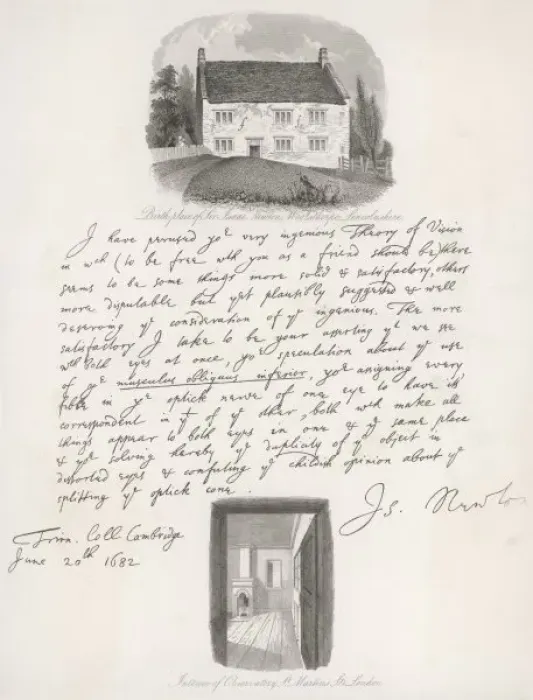 Birth place of Sir Isaac Newton, Woolsthorpe, Lincolnshire
I have perused yor very ingenious Theory of Vision
in wch (to be free wth you as a friend should be) there
seems to be some things more solid & satisfactory, others
more disputable but yet plausibly suggested & well
deserving ye consideration of ye ingenious. The more
satisfactory I take to be your asserting yt we see
wth both eyes at once, yor speculation about ye use
of ye musculus obliquus inferior, yor assigning every
fibre in ye optick nerve of one eye to have its
correspondent in yt of ye other, both wch make all
things appear to both eyes in one & ye same place
& yor solving hereby ye duplicity of ye object in
distorted eyes & confuting ye childish opinion about ye
splitting ye optick cone.
Is. Newton
Trin. Coll. Cambridge
June 20th 1682
Interior of Observatory, St. Martins St. London